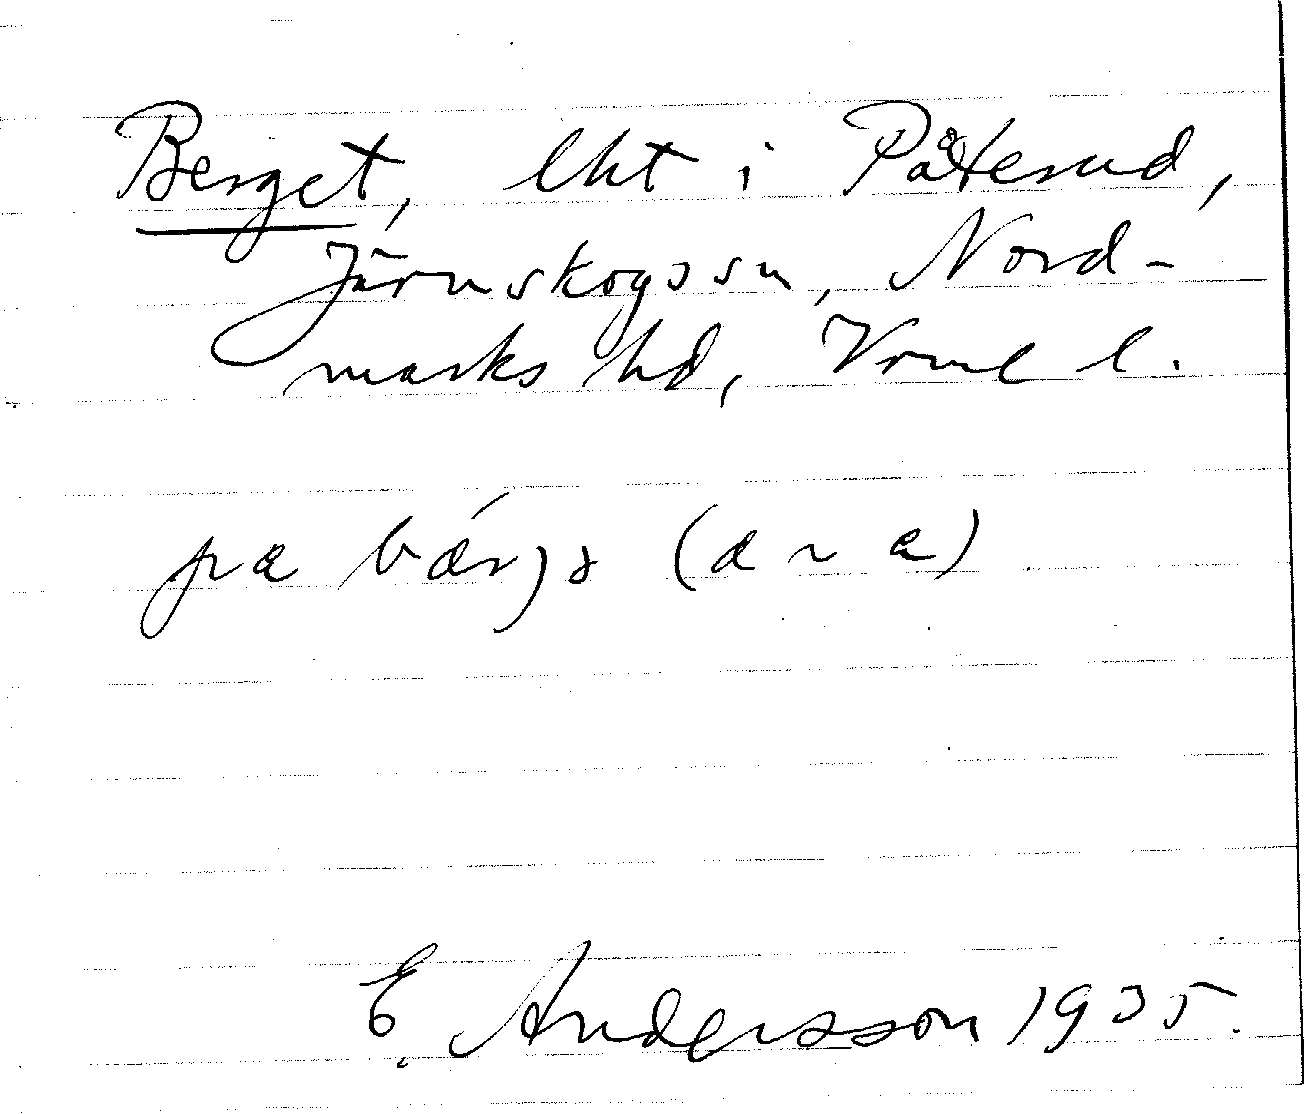 Berget, lht i Påterud,
Järnskogs sn, Nord-
marks hd, Vrml l.
pa bærjs (a ~ a)
E. Andersson 1935.